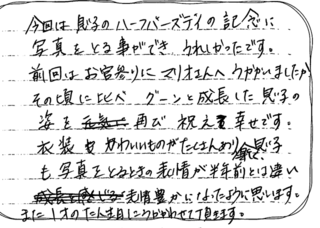 今回は息子のハーフバースデイの記念に
写真をとる事ができ うれしかったです。
前回はお宮参りにマリオさんへうかがいましたが
その頃に比べ グーンと成長した息子の
姿を 再び 祝えて 幸せです。
衣装も かわいいものがたくさんあり 息子
も写真をとるときの表情が半年前とは違い
表情豊かになったように思います。
また1才のたん生日にうかがわせて頂きます。